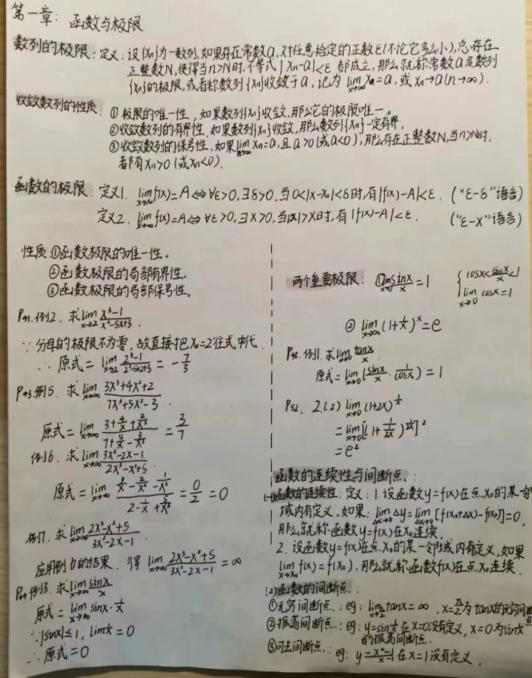 第一章：函数与极限
数列的极限：定义：设{xₙ}为一数列，如果存在常数a，对任意给定的正数ε(不论它多么小)，总存在
正整数N，使得当n>N时，不等式|xₙ-a|<ε都成立，那么就称常数a是数列
{xₙ}的极限，或者称数列{xₙ}收敛于a，记为 lim(n→∞) xₙ=a，或xₙ→a(n→∞).
收敛数列的性质：①极限的唯一性，如果数列{xₙ}收敛，那么它的极限唯一。
②收敛数列的有界性，如果数列{xₙ}收敛，那么数列{xₙ}一定有界。
③收敛数列的保号性，如果lim xₙ=a，且a>0(或a<0)，那么存在正整数N，当n>N时，
都有xₙ>0(或xₙ<0).
函数的极限：定义1. lim(x→x₀) f(x)=A⇔∀ε>0,∃δ>0,当0<|x-x₀|<δ时,有|f(x)-A|<ε. ("ε-δ"语言)
定义2. lim(x→∞) f(x)=A⇔∀ε>0,∃X>0,当|x|>X时,有|f(x)-A|<ε. ("ε-X"语言)
性质:①函数极限的唯一性。
②函数极限的局部有界性。
③函数极限的局部保号性。
例2. 求lim(x→2) (x³-1)/(x²-5x+3)
∵分母的极限不为零，故直接把x₀=2往式中代.
∴原式=lim (2³-1)/(2²-5×2+3)=-7/3
例5. 求lim(x→∞) (3x³+4x²+2)/(7x³+5x²-3).
原式=lim(x→∞) (3+4/x+2/x³)/(7+5/x-3/x³)=3/7
例6. 求lim(x→∞) (3x²-2x-1)/(2x³-x²+5).
原式=lim(x→∞) (3/x-2/x²-1/x³)/(2-1/x+5/x³)=0/2=0
例7. 求lim(x→∞) (2x³-x²+5)/(3x²-2x-1)
应用例6的结果，得lim(x→∞) (2x³-x²+5)/(3x²-2x-1)=∞
例8. 求lim(x→∞) sinx/x
原式=lim(x→∞) sinx·1/x
∵|sinx|≤1, lim 1/x=0
∴原式=0
两个重要极限: ①lim sinx/x=1 {cosx<sinx/x<1
lim(x→0) cosx=1
②lim(x→∞) (1+1/x)ˣ=e
例11. 求lim(x→0) tanx/x
原式=lim(x→0) (sinx/x·1/cosx)=1
P52. 2.(2) lim(x→0) (1+2x)^(1/x)
=e²
函数的连续性与间断点:
(一)函数的连续性: 定义: 1.设函数y=f(x)在点x₀的某一邻
域内有定义，如果: lim(Δx→0) Δy=lim(Δx→0) [f(x₀+Δx)-f(x₀)]=0.
那么就称函数y=f(x)在x₀连续.
2. 设函数y=f(x)在点x₀的某一邻域内有定义，如果
lim(x→x₀) f(x)=f(x₀)，那么就称函数f(x)在点x₀连续.
(二)函数的间断点:
①无穷间断点: eg: lim(x→π/2) tanx=∞. x=π/2为tanx的无穷间断点
②振荡间断点: eg: y=sin1/x在x=0没有定义，x=0为sin1/x
的振荡间断点.
③可去间断点: eg: y=(x²-1)/(x-1)在x=1没有定义.